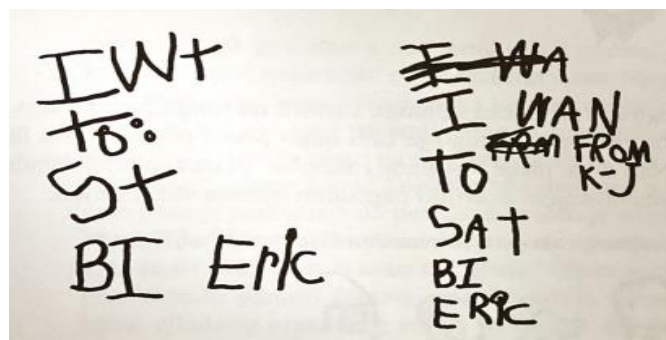 I Wt
to:
St
BI Eric
I WA
I WAN
TO FROM FROM
K-J
SAT
BI
ERIC